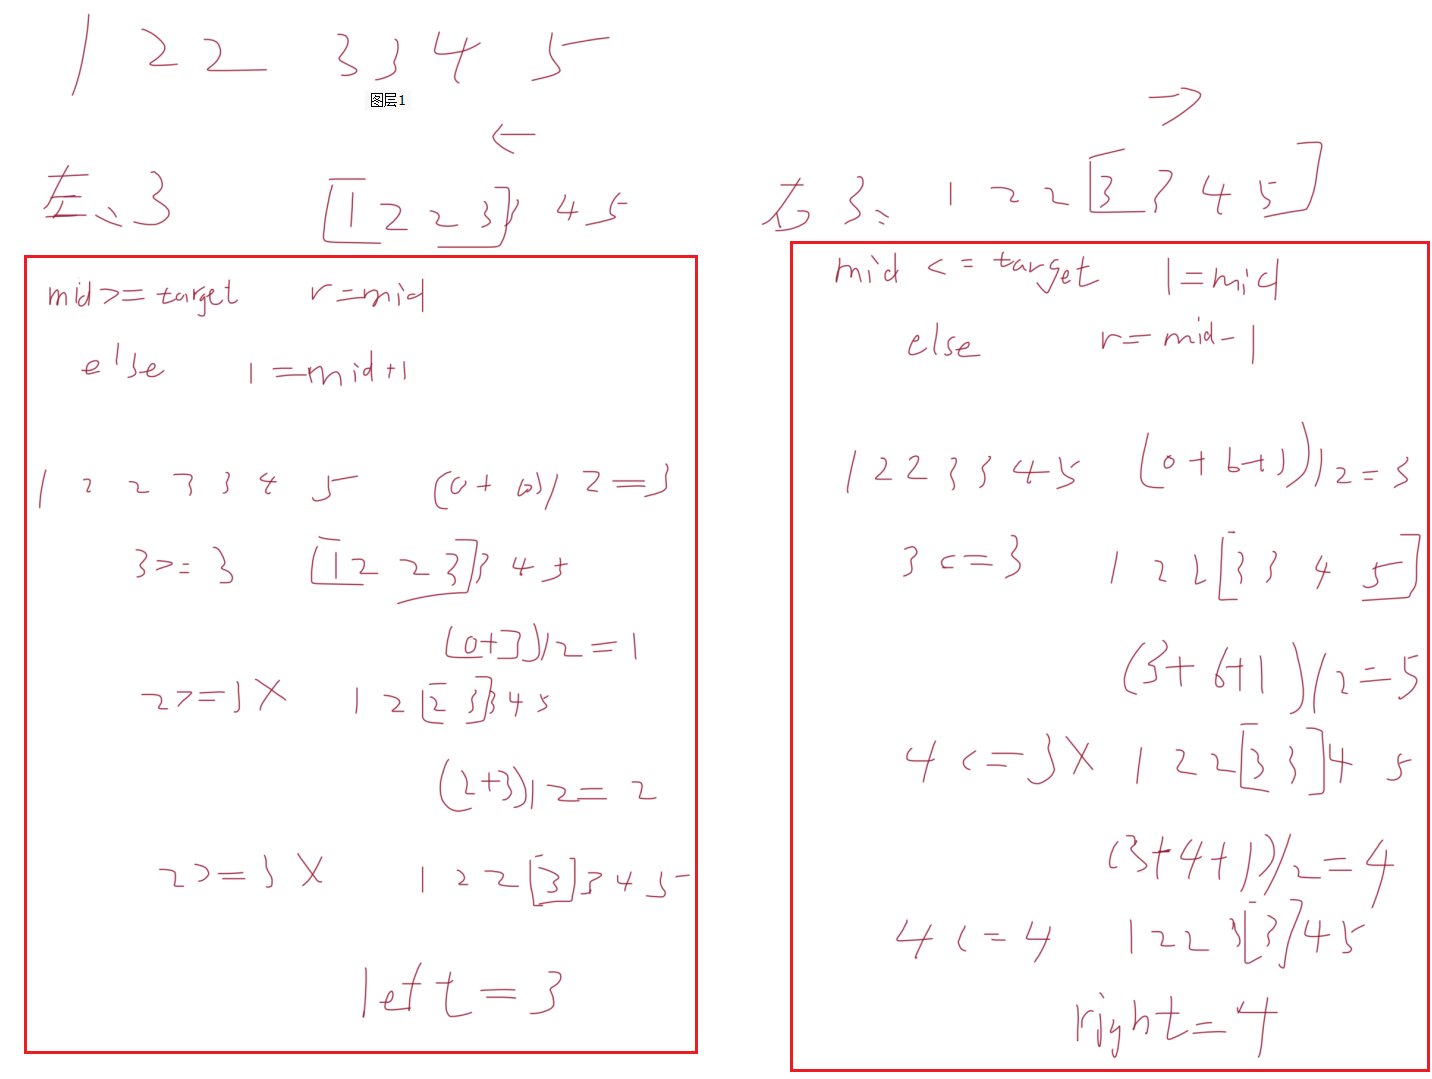 1 2 2 3 3 4 5
图层1
←
左、3 [1 2 2 3] 3 4 5
mid >= target r = mid
else l = mid + 1
1 2 2 3 3 4 5 (0 + 6) / 2 = 3
3 >= 3 [1 2 2 3] 3 4 5
(0+3) / 2 = 1
2 >= 3 X 1 2 [2 3] 3 4 5
(2+3) / 2 = 2
2 >= 3 X 1 2 2 [3] 3 4 5
left = 3
→
右 3、 1 2 2 [3 3 4 5]
mid <= target l = mid
else r = mid - 1
1 2 2 3 3 4 5 (0 + 6 + 1) / 2 = 3
3 <= 3 1 2 2 [3 3 4 5]
(3 + 6 + 1) / 2 = 5
4 <= 3 X 1 2 2 [3 3] 4 5
(3 + 4 + 1) / 2 = 4
4 <= 4 1 2 2 3 [3] 4 5
right = 4